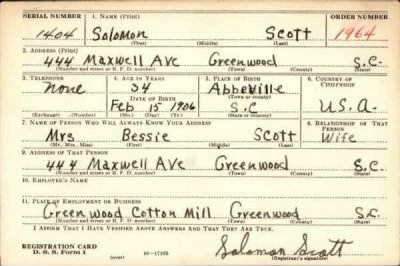 SERIAL NUMBER 1. NAME (Print) ORDER NUMBER
1404 Solomon Scott 1964
(First) (Middle) (Last)
2. ADDRESS (Print)
444 Maxwell Ave Greenwood S.C.
(Number and street or R. F. D. number) (Town) (County) (State)
3. TELEPHONE 4. AGE IN YEARS 5. PLACE OF BIRTH 6. COUNTRY OF CITIZENSHIP
None 34 Abbeville
DATE OF BIRTH (Town or county)
Feb 15 1906 S.C U.S.A.
(Exchange) (Number) (Mo.) (Day) (Yr.) (State or country)
7. NAME OF PERSON WHO WILL ALWAYS KNOW YOUR ADDRESS 8. RELATIONSHIP OF THAT PERSON
Mrs Bessie Scott Wife
(Mr., Mrs., Miss) (First) (Middle) (Last)
9. ADDRESS OF THAT PERSON
444 Maxwell Ave Greenwood S.C.
(Number and street or R. F. D. number) (Town) (County) (State)
10. EMPLOYER'S NAME
11. PLACE OF EMPLOYMENT OR BUSINESS
Greenwood Cotton Mill Greenwood S.C.
(Number and street or R. F. D. number) (Town) (County) (State)
I AFFIRM THAT I HAVE VERIFIED ABOVE ANSWERS AND THAT THEY ARE TRUE.
REGISTRATION CARD Solomon Scott
D. S. S. Form 1 (over) 16—17105 (Registrant's signature)